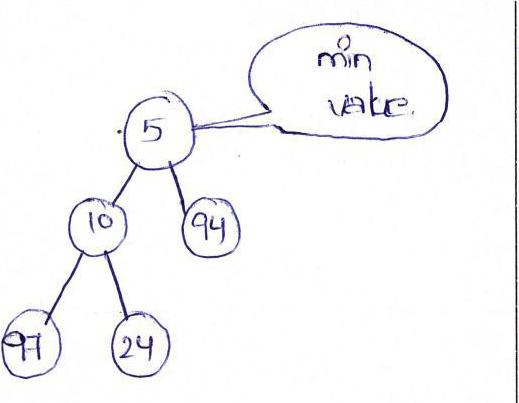 min
value.
5
10
94
97
24